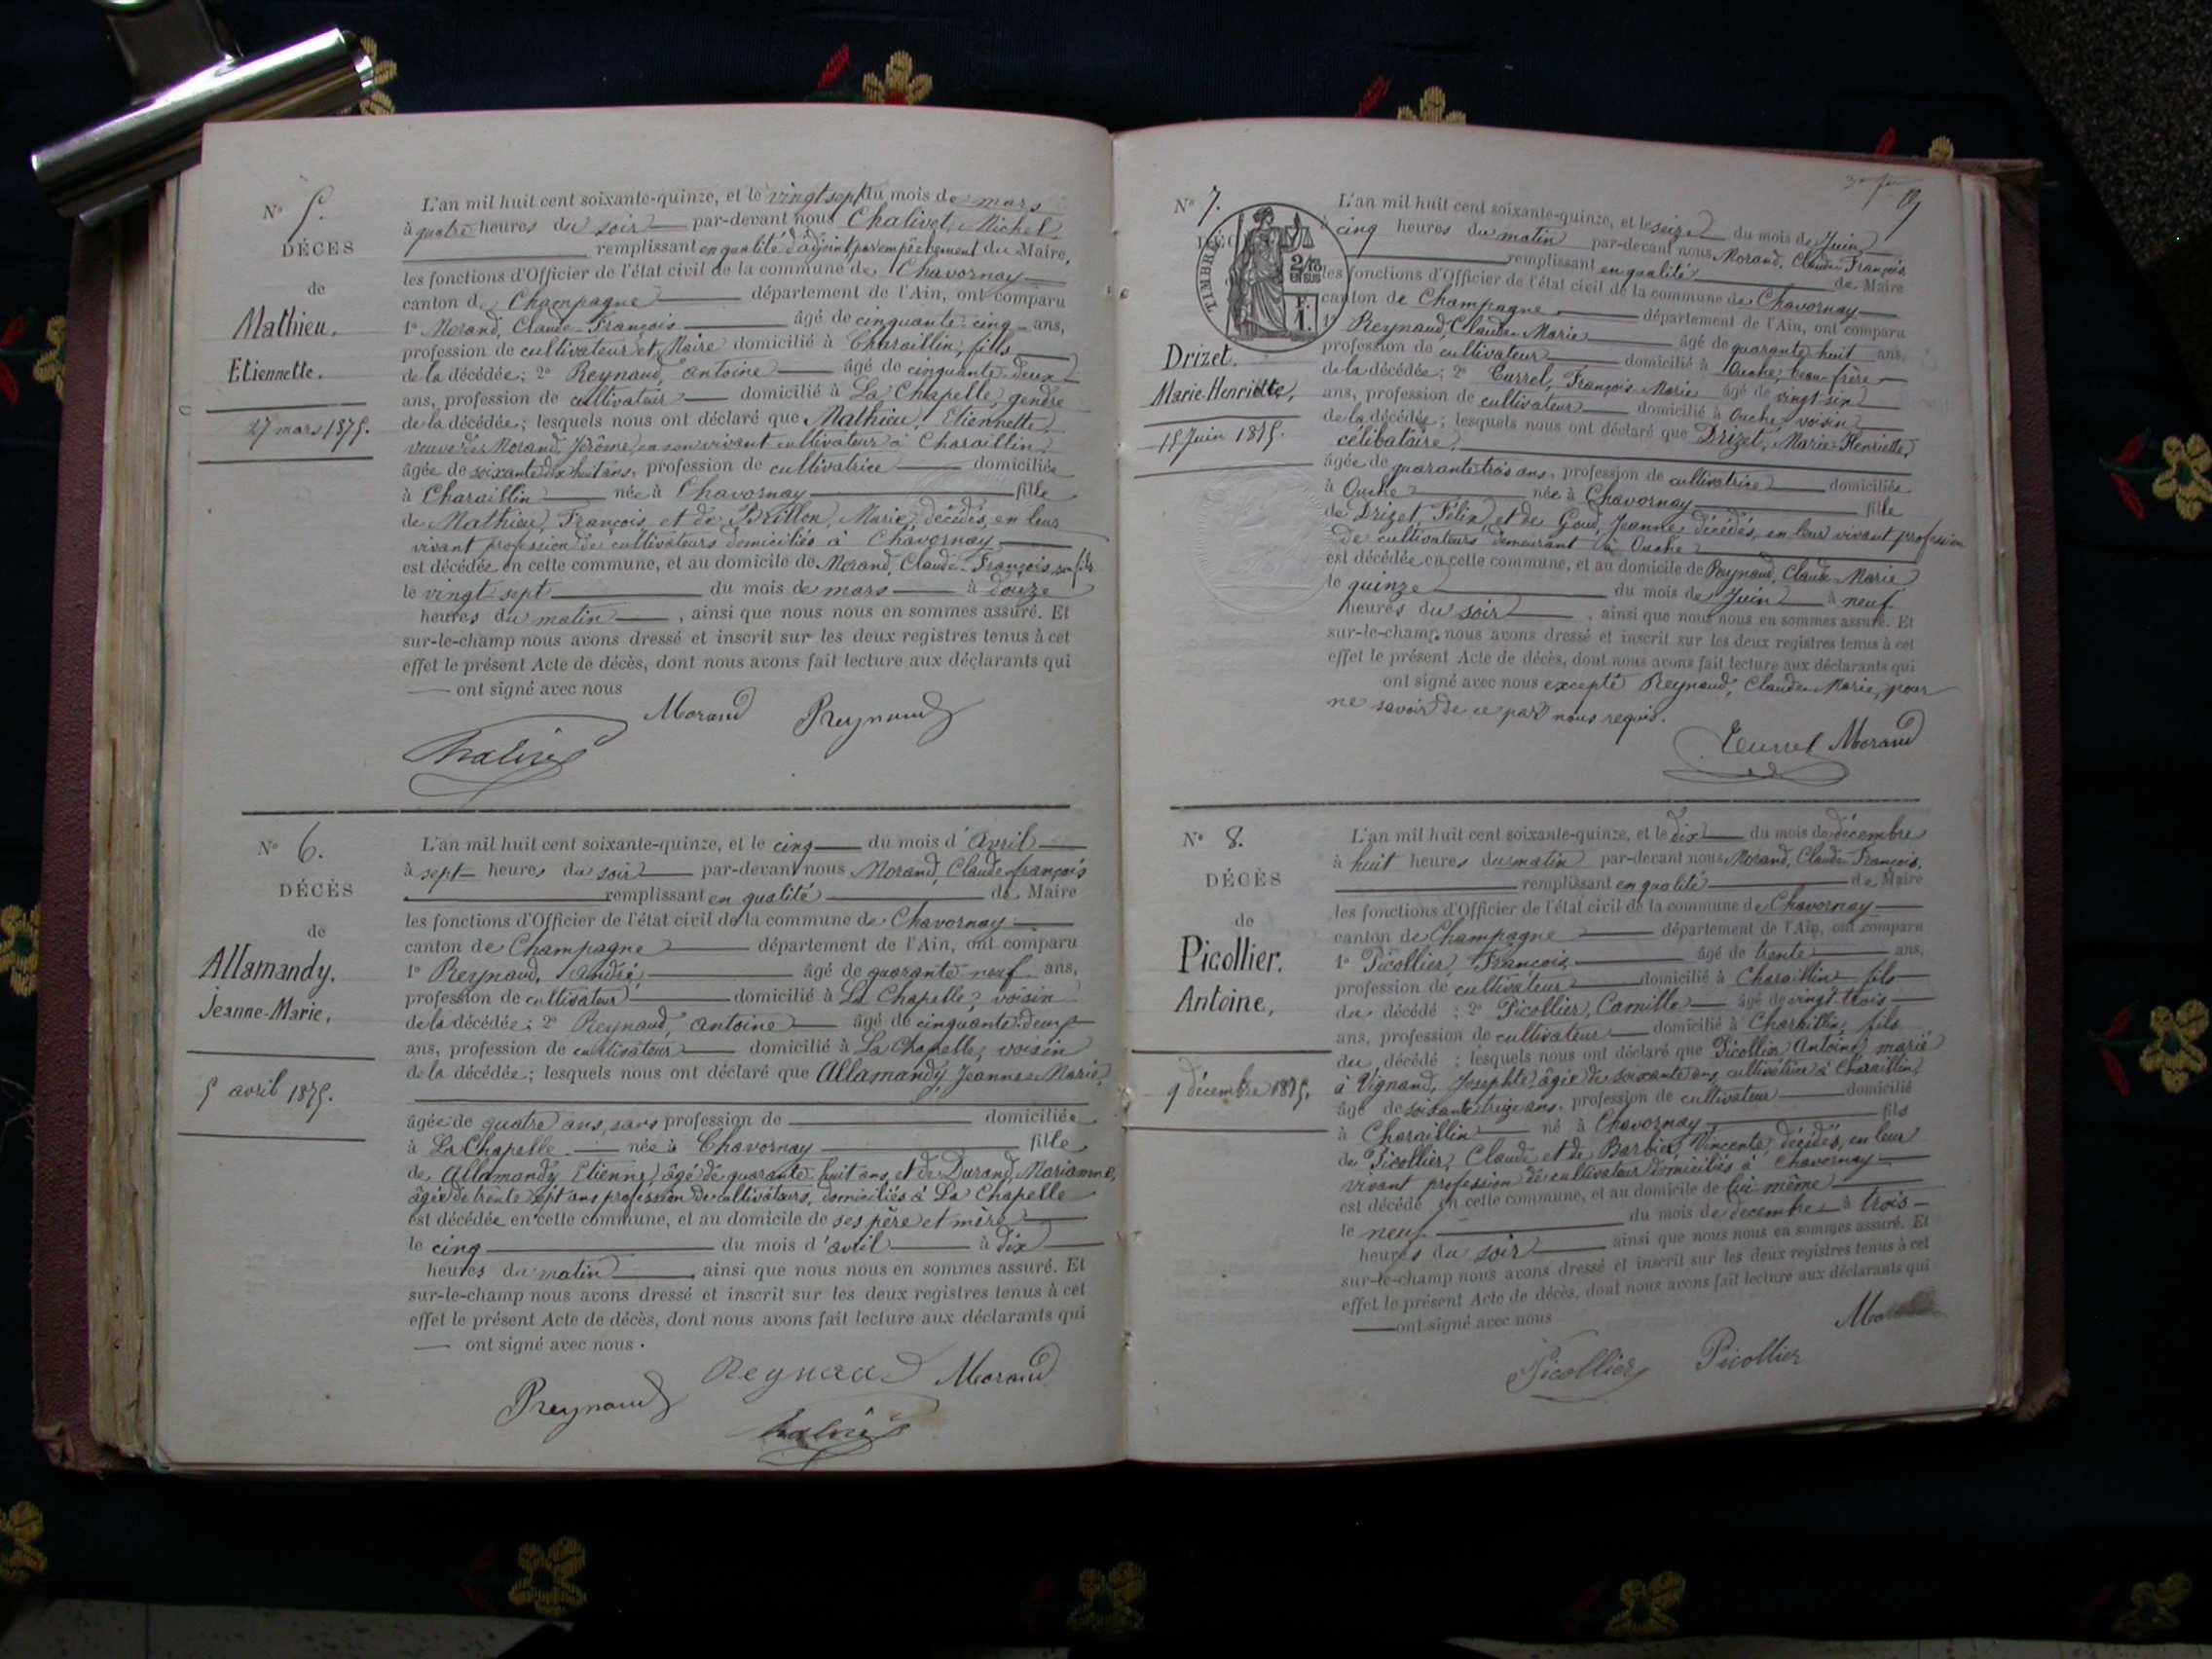 N° 5.
DÉCÈS
de
Mathieu,
Etiennette.
27 mars 1875.
L'an mil huit cent soixante-quinze, et le vingt sept du mois de mars
à quatre heures du soir par-devant nous Chalivet, Michel
remplissant en qualité d'adjoint par empêchement du Maire,
les fonctions d'Officier de l'état civil de la commune de Chavornay
canton de Champagne département de l'Ain, ont comparu
1° Morand, Claude-François âgé de cinquante-cinq ans,
profession de cultivateur et Maire domicilié à Charaillin, fils
de la décédée; 2° Reynaud, Antoine âgé de cinquante-deux
ans, profession de cultivateur domicilié à La Chapelle, gendre
de la décédée; lesquels nous ont déclaré que Mathieu, Etiennette,
veuve de Morand, Jérôme, en son vivant cultivateur à Charaillin,
âgée de soixante dix huit ans, profession de cultivatrice domiciliée
à Charaillin née à Chavornay fille
de Mathieu, François et de Brillon, Marie, décédés, en leur
vivant profession de cultivateurs domiciliés à Chavornay
est décédée en cette commune, et au domicile de Morand, Claude-François, son fils
le vingt sept du mois de mars à douze
heures du matin , ainsi que nous nous en sommes assuré. Et
sur-le-champ nous avons dressé et inscrit sur les deux registres tenus à cet
effet le présent Acte de décès, dont nous avons fait lecture aux déclarants qui
ont signé avec nous
Morand Reynaud
Chalivet
N° 6.
DÉCÈS
de
Allamandy.
Jeanne-Marie,
5 avril 1875.
L'an mil huit cent soixante-quinze, et le cinq du mois d'Avril
à sept heures du soir par-devant nous Morand, Claude françois
remplissant en qualité de Maire
les fonctions d'Officier de l'état civil de la commune de Chavornay
canton de Champagne département de l'Ain, ont comparu
1° Reynaud, André, âgé de quarante-neuf ans,
profession de cultivateur domicilié à La Chapelle, voisin
de la décédée; 2° Reynaud, Antoine âgé de cinquante-deux
ans, profession de cultivateur domicilié à La Chapelle, voisin
de la décédée; lesquels nous ont déclaré que Allamandy, Jeanne-Marie,
âgée de quatre ans, sans profession de domiciliée
à La Chapelle née à Chavornay fille
de Allamandy, Etienne, âgé de quarante huit ans, et de Durand, Marianne,
âgée de trente sept ans profession de cultivateurs, domiciliés à La Chapelle
est décédée en cette commune, et au domicile de ses père et mère
le cinq du mois d'avril à dix
heures du matin , ainsi que nous nous en sommes assuré. Et
sur-le-champ nous avons dressé et inscrit sur les deux registres tenus à cet
effet le présent Acte de décès, dont nous avons fait lecture aux déclarants qui
ont signé avec nous.
Reynaud Reynaud Morand
Chalivet
N° 7.
TIMBRE
2/10
EN SUS
F.
1.
Drizet.
Marie-Henriette,
15 Juin 1875.
L'an mil huit cent soixante-quinze, et le seize du mois de Juin
à cinq heures du matin par-devant nous Morand, Claude François
remplissant en qualité de Maire
les fonctions d'Officier de l'état civil de la commune de Chavornay
canton de Champagne département de l'Ain, ont comparu
1° Reynaud, Claude-Marie âgé de quarante huit ans,
profession de cultivateur domicilié à Ouche, beau-frère
de la décédée; 2° Turrel, François-Marie âgé de vingt-six
ans, profession de cultivateur domicilié à Ouche, voisin
de la décédée; lesquels nous ont déclaré que Drizet, Marie-Henriette,
célibataire,
âgée de quarante trois ans, profession de cultivatrice domiciliée
à Ouche née à Chavornay fille
de Drizet, Félix, et de Goud, Jeanne, décédés, en leur vivant profession
de cultivateurs demeurant à Ouche
est décédée en cette commune, et au domicile de Reynaud, Claude-Marie
le quinze du mois de Juin à neuf
heures du soir , ainsi que nous nous en sommes assuré. Et
sur-le-champ nous avons dressé et inscrit sur les deux registres tenus à cet
effet le présent Acte de décès, dont nous avons fait lecture aux déclarants qui
ont signé avec nous excepté Reynaud, Claude-Marie, pour
ne savoir de ce par nous requis.
Turrel Morand
N° 8.
DÉCÈS
de
Picollier.
Antoine,
9 décembre 1875.
L'an mil huit cent soixante-quinze, et le dix du mois de décembre
à huit heures du matin par-devant nous Morand, Claude-François,
remplissant en qualité de Maire
les fonctions d'Officier de l'état civil de la commune de Chavornay
canton de Champagne département de l'Ain, ont comparu
1° Picollier, François âgé de trente ans,
profession de cultivateur domicilié à Charaillin fils
du décédé ; 2° Picollier, Camille âgé de vingt-trois
ans, profession de cultivateur domicilié à Charaillin, fils
du décédé ; lesquels nous ont déclaré que Picollier Antoine, marié
à Vignand, Josephte, âgée de soixante ans, cultivatrice à Charaillin,
âgé de soixante treize ans, profession de cultivateur domicilié
à Charaillin né à Chavornay fils
de Picollier, Claude et de Barbier, Vincente, décédés, en leur
vivant profession de cultivateur domiciliés à Chavornay
est décédé en cette commune, et au domicile de lui-même
le neuf du mois de décembre à trois
heures du soir ainsi que nous nous en sommes assuré. Et
sur-le-champ nous avons dressé et inscrit sur les deux registres tenus à cet
effet le présent Acte de décès, dont nous avons fait lecture aux déclarants qui
ont signé avec nous
Picollier Picollier